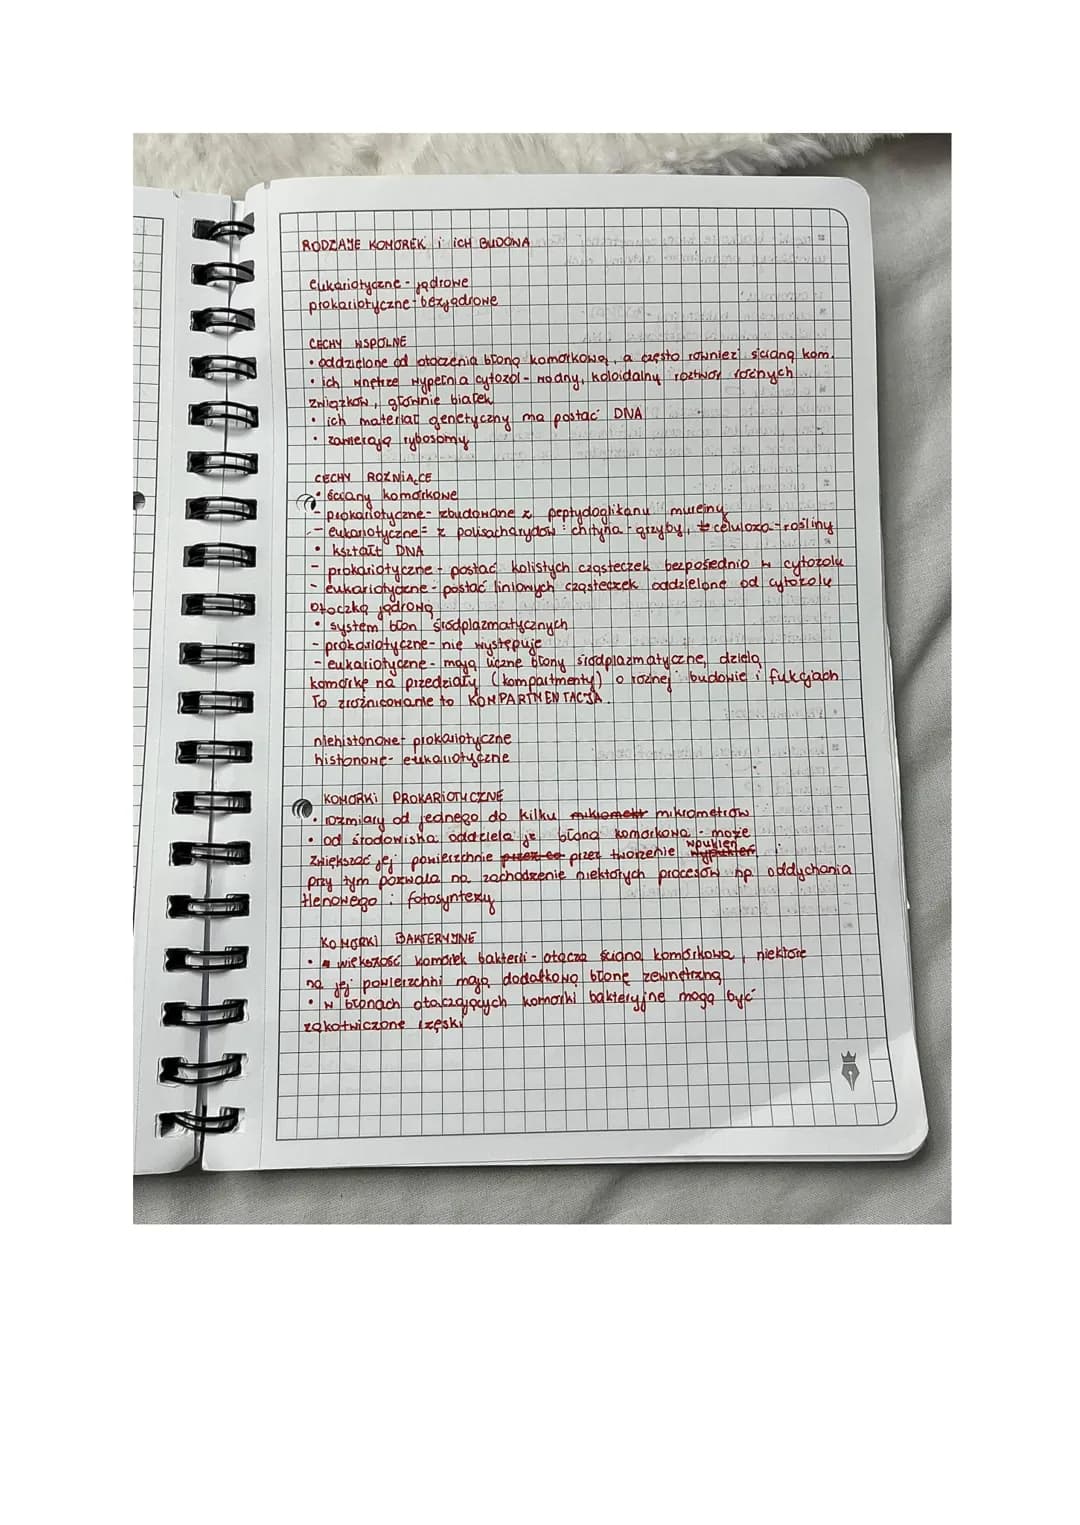 RODZAJE KOMÓREK i ICH BUDOWA
eukariotyczne - jądrowe
prokariotyczne - bezjądrowe
CECHY WSPÓLNE
• oddzielone od otoczenia błoną komórkową, a często również ścianą kom.
• ich wnętrze wypełnia cytozol - wodny, koloidalny roztwór rożnych
związków, głownie białek
• ich materiał genetyczny ma postać DNA
• zawierają rybosomy
CECHY ROŻNIĄCE
• ściany komórkowe
- prokariotyczne - zbudowane z peptydoglikanu mureiny
- eukariotyczne - z polisacharydów: chityna - grzyby, celuloza - rośliny
• kształt DNA
- prokariotyczne - postać kolistych cząsteczek bezpośednio w cytozolu
- eukariotyczne - postać liniowych cząsteczek oddzielone od cytozolu
otoczką jądrową
• system błon śródplazmatycznych
- prokariotyczne - nie występuje
- eukariotyczne - mają liczne błony śródplazmatyczne, dzielą
komórkę na przedziały (kompartmenty) o rożnej budowie i fukcjach
To zrożnicowanie to KOMPARTMENTACJA.
niehistonowe - prokariotyczne
histonowe - eukariotyczne
KOMÓRKI PROKARIOTYCZNE
• rozmiary od jednego do kilku mikrometrów
• od środowiska oddziela je błona komórkowa - może
zwiększać jej powierzchnie przez tworzenie wpukleń
przy tym pozwala na zachodzenie niektórych procesów np. oddychania
tlenowego i fotosyntezy
KOMÓRKI BAKTERYJNE
• większość komórek bakterii - otacza ściana komórkowa, niektóre
na jej powierzchni mają dodatkową błonę zewnętrzną
• w błonach otaczających komórki bakteryjne mogą być
zakotwiczone rzęski